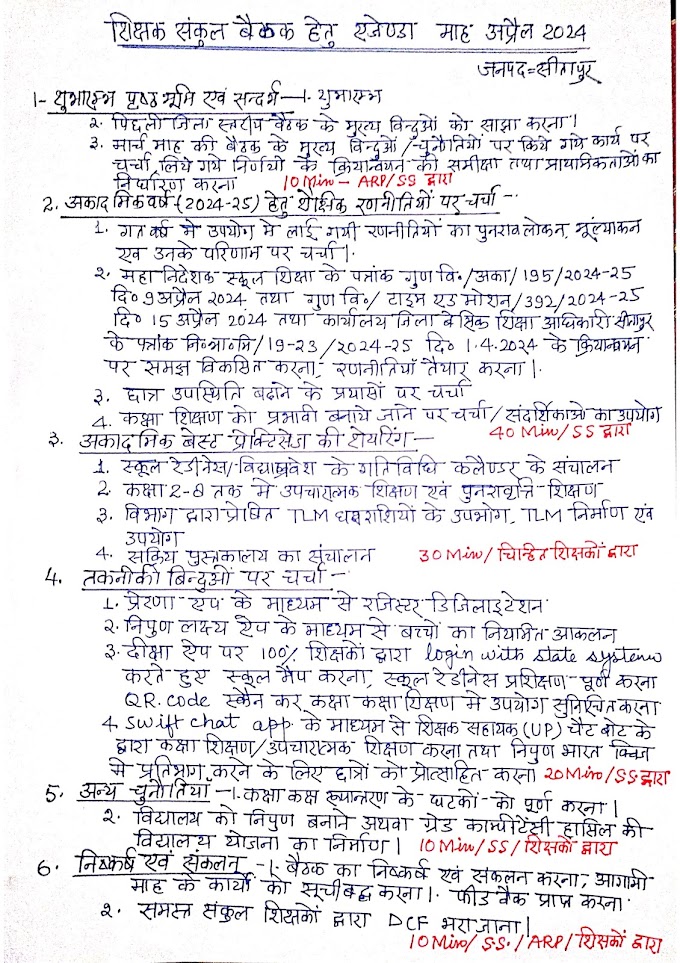 शिक्षक संकुल बैठक हेतु एजेण्डा माह अप्रैल 2024
जनपद=सीतापुर
1- शुभारम्भ पृष्ठभूमि एवं सन्दर्भ—1. शुभारम्भ
2. पिछली जिला स्तरीय बैठक के मुख्य विन्दुओं को साझा करना।
3. मार्च माह की बैठक के मुख्य विन्दुओं / चुनौतियों पर किये गये कार्य पर
चर्चा, लिये गये निर्णयों के क्रियान्वयन की समीक्षा तथा प्राथमिकताओं का
निर्धारण करना 10 Min – ARP/SS द्वारा
2. अकादमिक वर्ष (2024-25) हेतु शैक्षिक रणनीतियों पर चर्चा -
1. गत वर्ष में उपयोग में लाई गयी रणनीतियों का पुनरावलोकन, मूल्यांकन
एवं उनके परिणाम पर चर्चा।
2. महानिदेशक स्कूल शिक्षा के पत्रांक गुण वि०/अका/195/2024-25
दि० 9 अप्रैल 2024 तथा गुण वि०/ टाइम एड मोशन/392/2024-25
दि० 15 अप्रैल 2024 तथा कार्यालय जिला बेसिक शिक्षा अधिकारी सीतापुर
के पत्रांक /19-23/2024-25 दि० 1.4.2024 के क्रियान्वयन
पर समझ विकसित करना, रणनीतियाँ तैयार करना।
3. छात्र उपस्थिति बढ़ाने के प्रयासों पर चर्चा
4. कक्षा शिक्षण को प्रभावी बनाये जाने पर चर्चा/संदर्शिकाओं का उपयोग
40 Min/SS द्वारा
3. अकादमिक बेस्ट प्रैक्टिसेज की शेयरिंग—
1. स्कूल रेडीनेस/विद्याप्रवेश के गतिविधि कलैण्डर के संचालन
2. कक्षा 2-8 तक में उपचारात्मक शिक्षण एवं पुनरावृत्ति शिक्षण
3. विभाग द्वारा प्रेषित TLM धनराशियों के उपभोग, TLM निर्माण एवं
उपयोग
4. सक्रिय पुस्तकालय का संचालन 30 Min/ चिन्हित शिक्षकों द्वारा
4. तकनीकी बिन्दुओं पर चर्चा -
1. प्रेरणा एप के माध्यम से रजिस्टर डिजिलाइटेशन
2. निपुण लक्ष्य ऐप के माध्यम से बच्चों का नियमित आकलन
3. दीक्षा ऐप पर 100% शिक्षकों द्वारा login with state system
करते हुए स्कूल मैप करना, स्कूल रेडीनेस प्रशिक्षण पूर्ण करना
QR. code स्कैन कर कक्षा कक्षा शिक्षण में उपयोग सुनिश्चित करना
4. swift chat app. के माध्यम से शिक्षक सहायक (UP) चैट बोट के
द्वारा कक्षा शिक्षण/उपचारात्मक शिक्षण करना तथा निपुण भारत क्विज
में प्रतिभाग करने के लिए छात्रों को प्रोत्साहित करना 20 Min/SS द्वारा
5. अन्य चुनौतियां -1. कक्षा कक्ष रूपान्तरण के घटकों को पूर्ण करना।
2. विद्यालय को निपुण बनाने अथवा ग्रेड काम्पीटेंसी हासिल की
विद्यालय योजना का निर्माण। 10 Min/SS/शिक्षकों द्वारा
6. निष्कर्ष एवं संकलन -1. बैठक का निष्कर्ष एवं संकलन करना, आगामी
माह के कार्यों को सूचीबद्ध करना। फीड बैक प्राप्त करना
2. समस्त संकुल शिक्षकों द्वारा DCF भरा जाना।
10 Min/S.S./ARP/शिक्षकों द्वारा